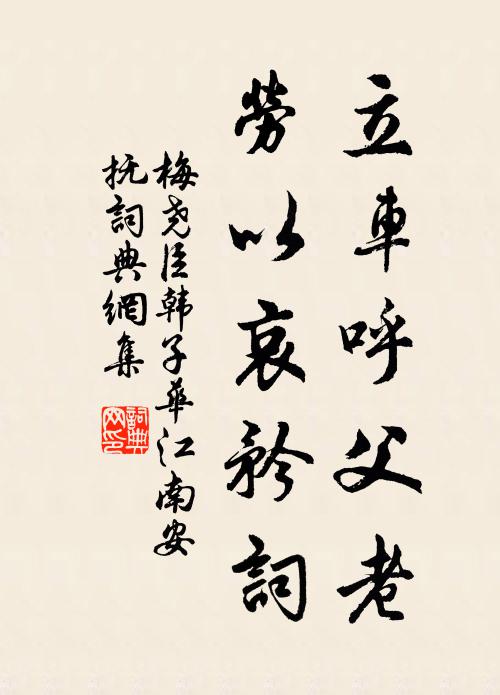 立車呼父老
勞以哀矜詞
梅尧臣韩子華江南安
抚詞典網集
詞典
网印